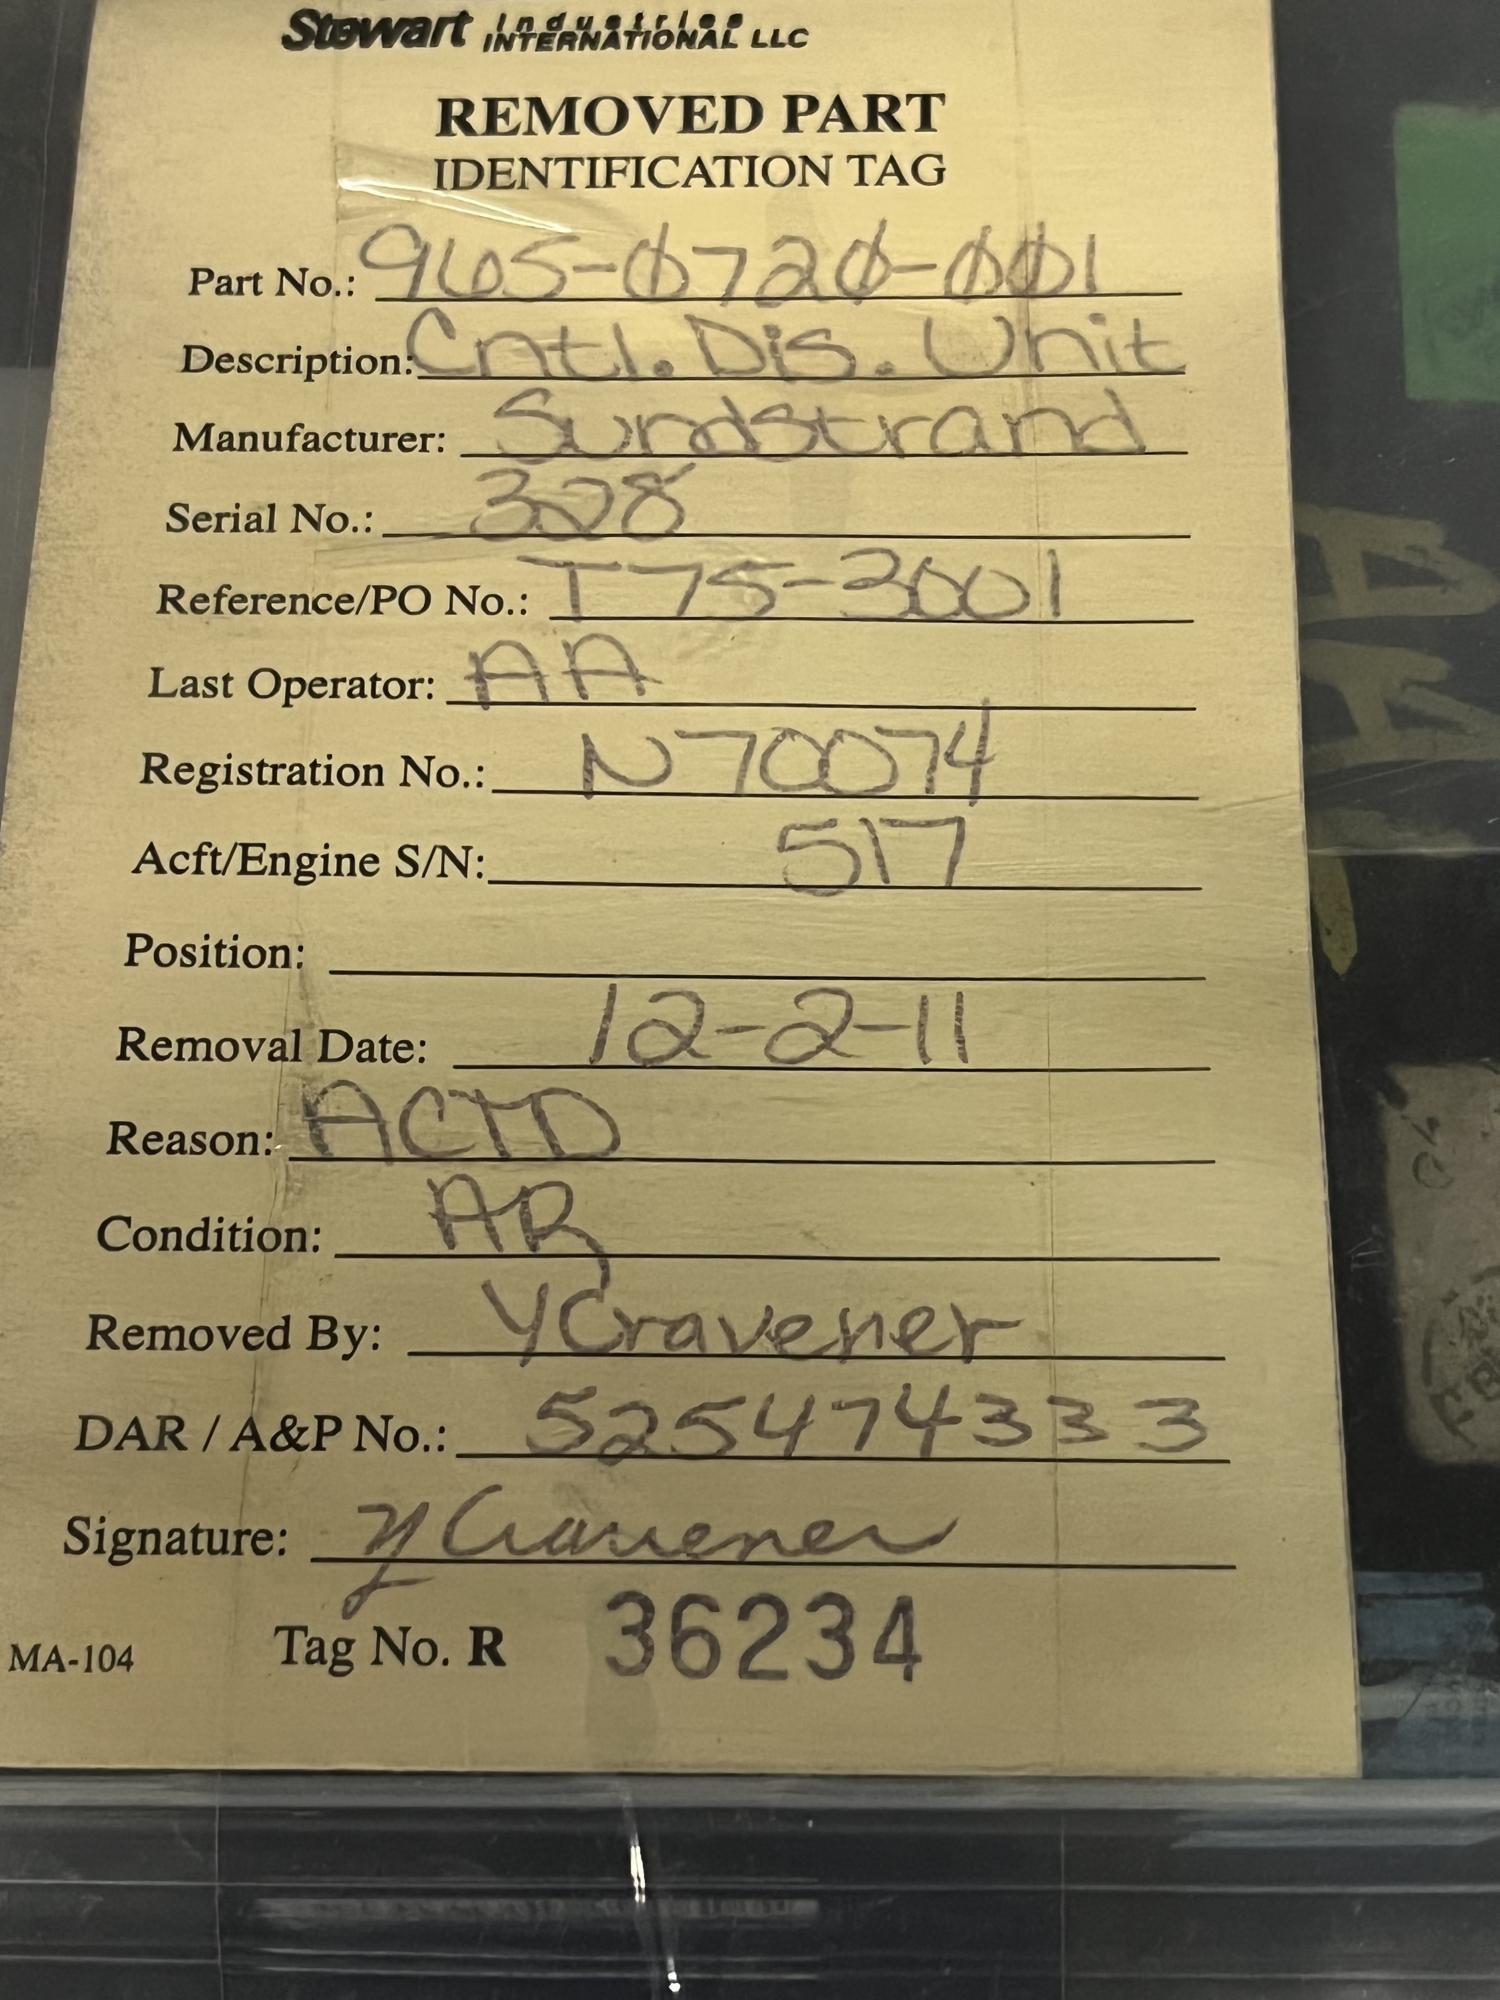 Stewart Industries
INTERNATIONAL LLC
REMOVED PART
IDENTIFICATION TAG
Part No.: 965-0720-001
Description: Cntl. Dis. Unit
Manufacturer: Sundstrand
Serial No.: 328
Reference/PO No.: T75-3001
Last Operator: AA
Registration No.: N70074
Acft/Engine S/N: 517
Position:
Removal Date: 12-2-11
Reason: ACTD
Condition: AR
Removed By: YCravener
DAR / A&P No.: 525474333
Signature: Y Cravener
MA-104 Tag No. R 36234